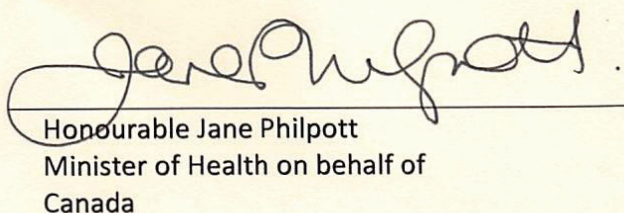 Jane Philpott.
Honourable Jane Philpott
Minister of Health on behalf of
Canada